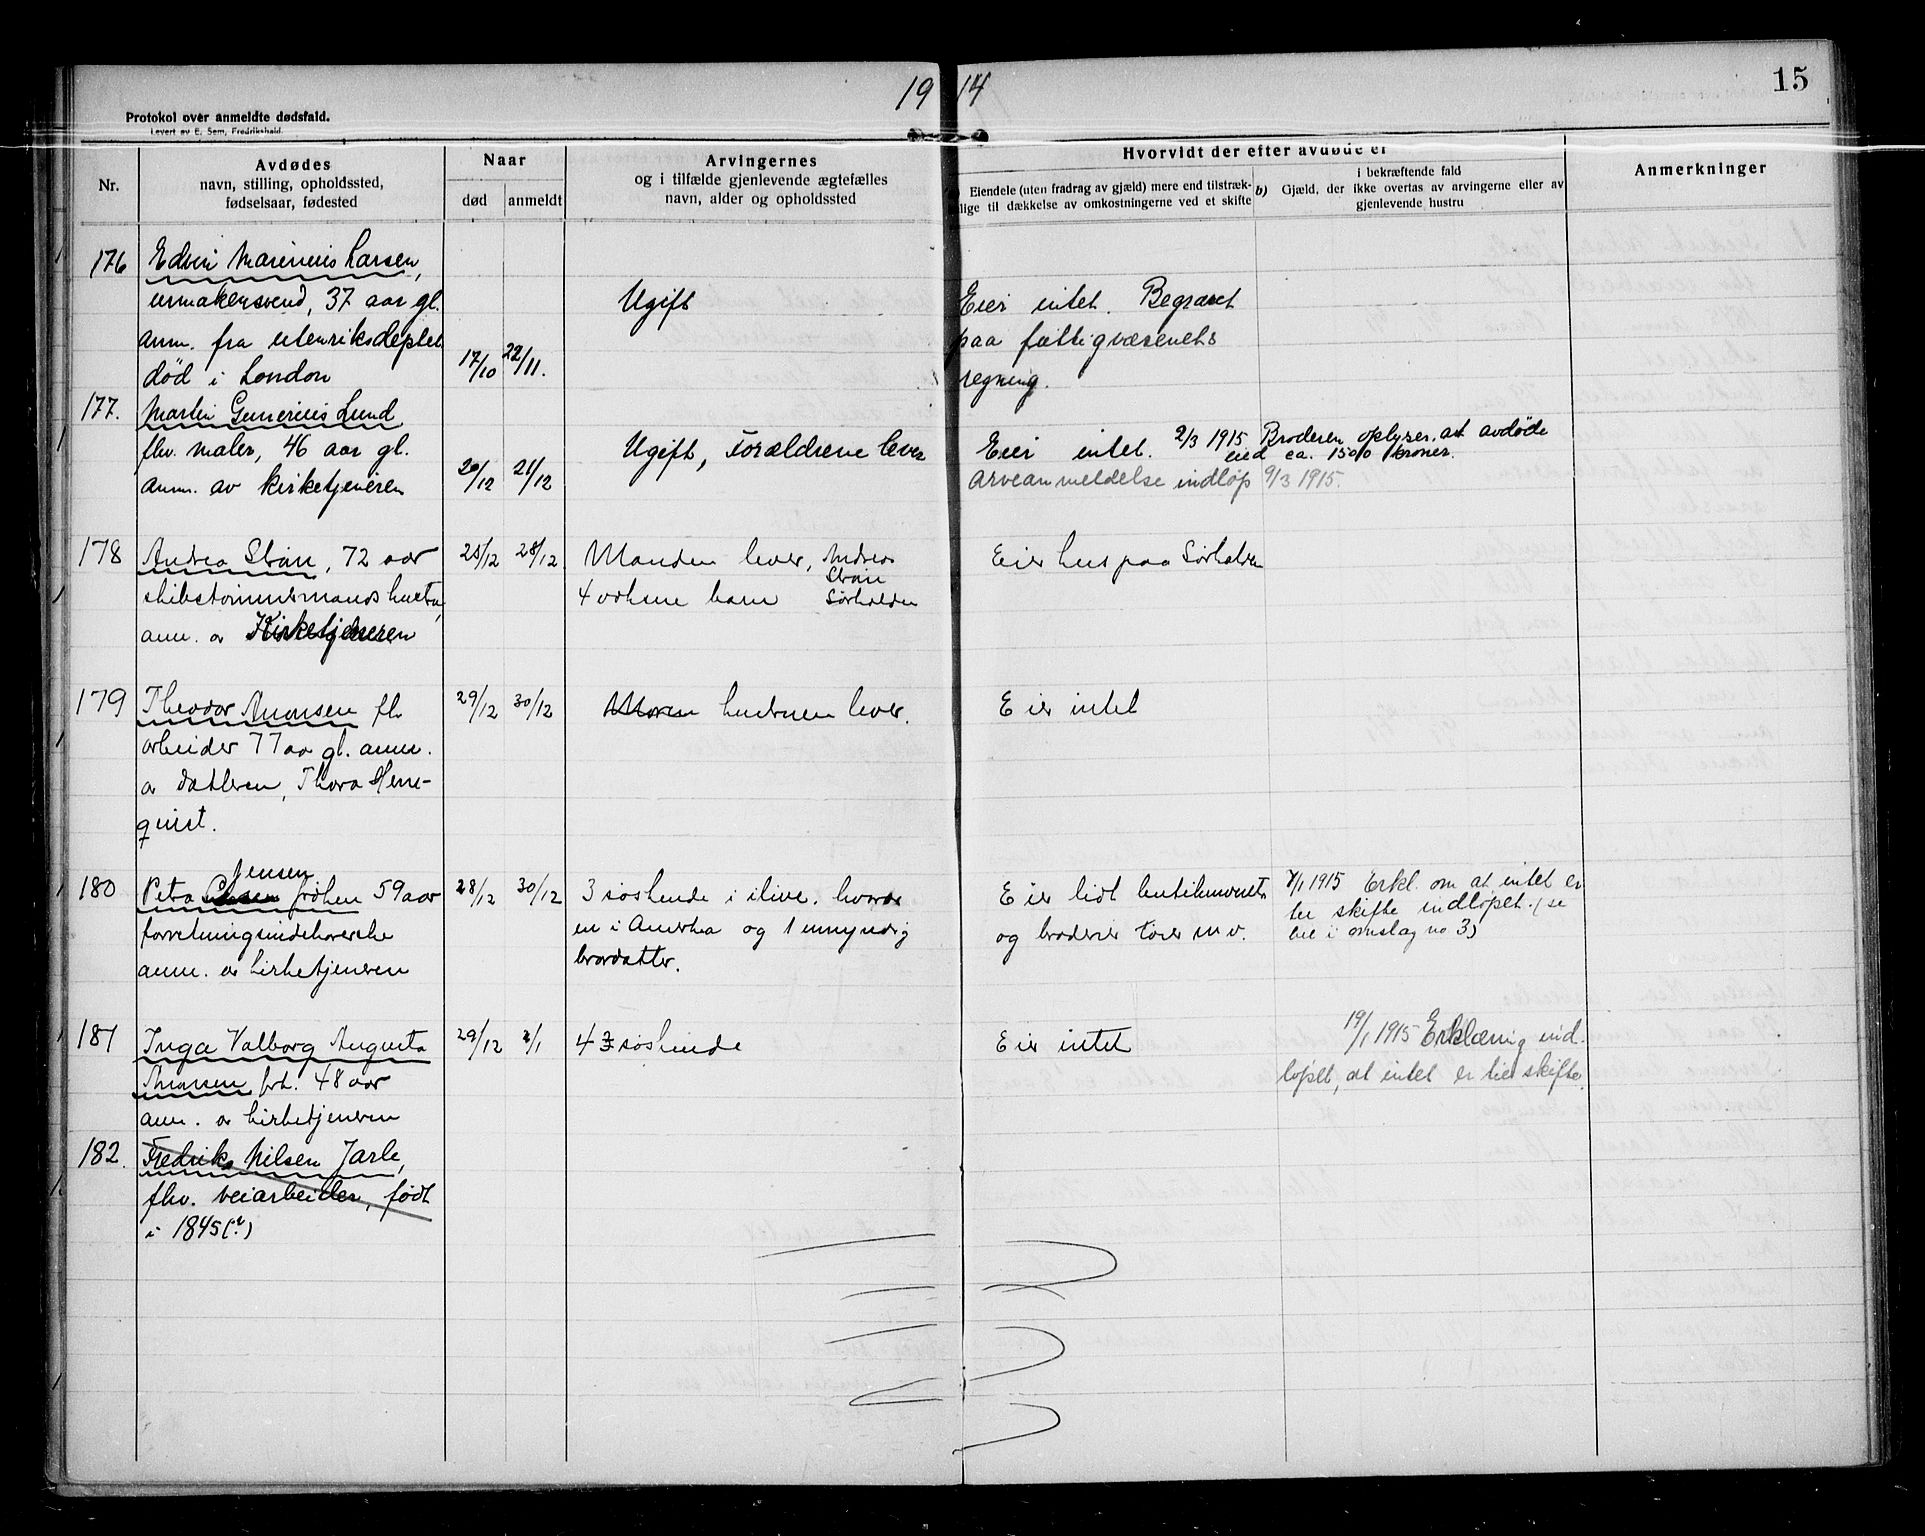 19 14
15
Protokol over anmeldte dødsfald.
Levert av E. Sem, Fredrikshald.
Nr.
Avdødes
navn, stilling, opholdssted,
fødselsaar, fødested
Naar
død
anmeldt
Arvingernes
og i tilfælde gjenlevende ægtefælles
navn, alder og opholdssted
Hvorvidt der efter avdøde er
Eiendele (uten fradrag av gjæld) mere end tilstræk-
lige til dækkelse av omkostningerne ved et skifte
i bekræftende fald
b) Gjæld, der ikke overtas av arvingerne eller av
gjenlevende hustru
Anmerkninger
176 Edvin Marinius Larsen,
urmakersvend, 37 aar gl.
anm. fra utenriksdeptet
død i London
17/10 22/11.
Ugift
Eier intet. Begravet
paa fattigvæsenets
regning.
177. Martin Gunerius Lund
fhv. maler, 46 aar gl.
anm. av kirketjeneren
20/12 21/12
Ugift, Forældrene lever
Eier intet. 2/3 1915 Broderen oplyser, at avdøde
eied ca. 1500 kroner.
Arveanmeldelse indløp 9/3 1915.
178 Andrea Strøm, 72 aar
skibstømmermands hustru
anm. av Kirketjeneren
25/12 28/12
Manden lever, Andreas
Strøm
4 voksne barn Sørhalden
Eier hus paa Sørhalden
179 Theodor Amonsen fh
arbeider 77 aa gl. anm.
av datteren, Thora Herre-
quist.
29/12 30/12
Moren hustruen lever.
Eier intet
180 Petra Jensen frøken 59 aar
forretningsindehaverske
anm. av kirketjeneren
28/12 30/12
3 søskende i live, hvorav
en i Amerika og 1 umyndig
brordatter.
Eier lidt butikinventar
og broderier varer m.v.
7/1 1915 Erkl. om at intet er
til skifte indløpet. (se
bil i omslag no 3)
181 Inga Valborg Augusta
Amonsen frk. 48 aar
anm. av kirketjeneren
29/12 2/1
4 søskende
Eier intet
19/1 1915 Erklæring ind-
løpet, at intet er til skifte.
182. Fredrik Nilsen Jarle,
fhv. veiarbeider, født
i 1845(?)